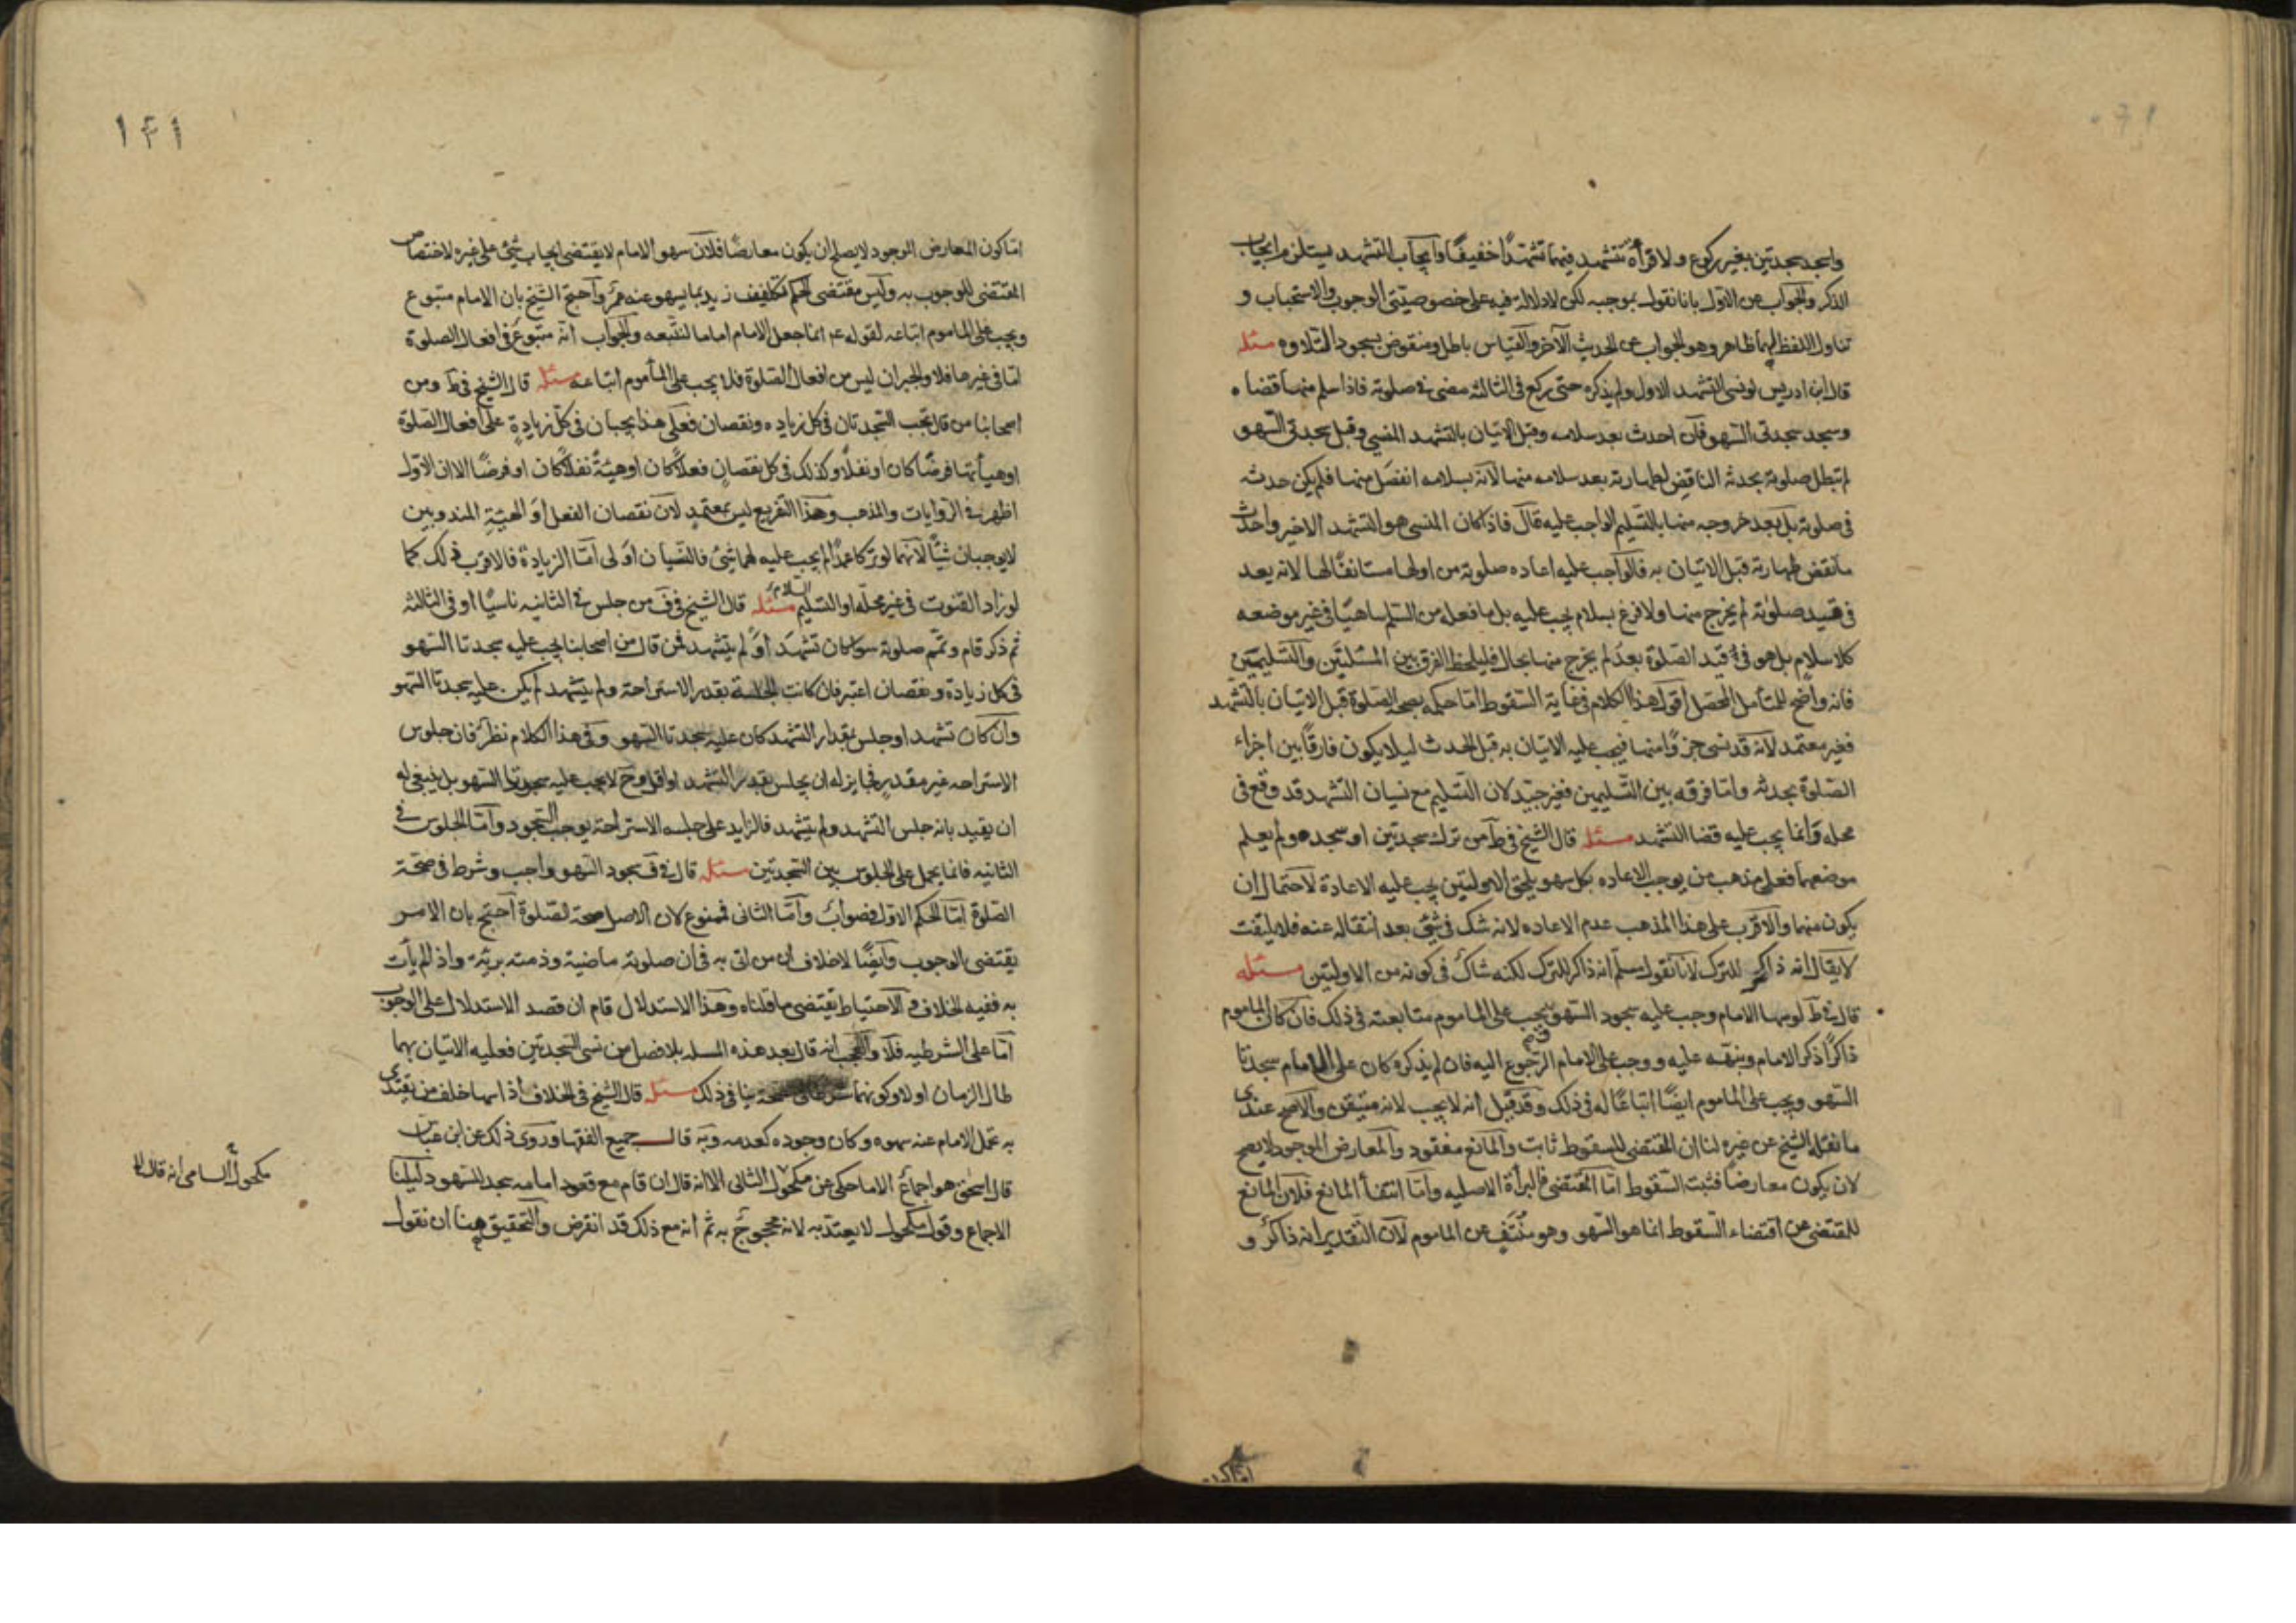 واسجد سجدتين بغير ركوع ولا قرأة تتشهد فيهما تشهدًا خفيفًا وايجاب التشهد يستلزم ايجاب
الذكر والجواب عن الاول بانا نقول بموجبه لكن لا دلالة فيه على خصوصيتي الوجوب والاستحباب و
تناول اللفظ لهما ظاهر وهو الجواب عن الحديث الآخر والقياس باطل ومنقوض بسجود التلاوه مسئله
قال ابن ادريس لو نسى التشهد الاول ولم يذكره حتى ركع في الثالثه مضى في صلوته فاذا سلم منها قضاه
وسجد سجدتى السهو فان احدث بعد سلامه وقبل الاتيان بالتشهد المنسي وقبل سجدتى السهو
لم تبطل صلوته بحدثه الناقض لطهارته بعد سلامه منها لانه بسلامه انفصل منها فلم يكن حدثه
في صلوته بل بعد خروجه منها بالتسليم الواجب عليه قال فاذا كان المنسى هو التشهد الاخير واحدث
ما نقض طهارته قبل الاتيان به فالواجب عليه اعاده صلوته من اولها مستانفًا لها لانه بعد
في قيد صلوته لم يخرج منها ولا فرغ بسلام يجب عليه بل ما فعله من السلم ساهيًا في غير موضعه
كلا سلام بل هو في قيد الصلوة بعد لم يخرج منها بحال فليلحظ الفرق بين المسئلتين والتسليمتين
فانه واضح للمتأمل المحصل اقول هذا الكلام في غاية السقوط اما حكمه بصحه الصلوة قبل الاتيان بالتشهد
فغير معتمد لانه قد نسى جزءًا منها فيجب عليه الاتيان به قبل الحدث ليلا يكون فارقًا بين اجزاء
الصلوة بحدثه واما فرقه بين التسليمين فغير جيد لان التسليم مع نسيان التشهد قد وقع في
محله وانما يجب عليه قضا التشهد مسئله قال الشيخ في ط من ترك سجدتين او سجده ولم يعلم
موضعهما فعلى مذهب من يوجب الاعاده بكل سهو يلحق الاوليتين يجب عليه الاعادة لاحتمال ان
يكون منهما والاقرب على هذا المذهب عدم الاعاده لانه شك في شئ بعد انتقاله عنه فلا يلتفت
لا يقال انه ذاكر للترك لانا نقول مسلم انه ذاكر للترك لكنه شاك في كونه من الاوليتين مسئله
قال في ط لو سها الامام وجب عليه سجود السهو ويجب على الماموم متابعته في ذلك فان كان الماموم
ذاكرًا ذكر الامام ونبهه عليه ووجب على الامام الرجوع اليه فان لم يذكره كان على الامام سجدتا
السهو ويجب على الماموم ايضًا اتباعًا له في ذلك وقد قيل انه لا يجب لانه متيقن والاصح عندى
ما نقله الشيخ عن غيره لنا ان المقتضى للسقوط ثابت والمانع مفقود والمعارض الموجود لا يصح
لان يكون معارضًا فثبت السقوط اما المقتضى فالبرأة الاصليه واما انتفأ المانع فلان المانع
للمقتضى عن اقتضاء السقوط انما هو السهو وهو منتف عن الماموم لان التقدير انه ذاكر و
اما كون
١٤١
اما كون المعارض الموجود لا يصلح ان يكون معارضًا فلان سهو الامام لا يقتضى ايجاب شئ على غيره لاختصاص
المقتضى للوجوب به وليس مقتضى الحكم تكليف زيد بما يسهو عنه عمرو احتج الشيخ بان الامام متبوع
ويجب على الماموم اتباعه لقوله ع انما جعل الامام اماما لنتبعه والجواب انه متبوع في افعال الصلوة
اما في غيرها فلا والجبران ليس من افعال الصلوة فلا يجب على المأموم اتباعه مسئله قال الشيخ في ط ومن
اصحابنا من قال تجب السجدتان في كل زياده ونقصان فعلى هذا يجبان في كل زيادةٍ على افعال الصلوة
او هيأتها فرضًا كان او نفلًا وكذلك في كل نقصان فعلًا كان او هيئةً نفلًا كان او فرضًا الا ان الاول
اظهر في الروايات والمذهب وهذا التفريع ليس بمعتمد لان نقصان الفعل او الهيئة المندوبين
لا يوجبان شيئًا لانهما لو تركا عمدًا لم يجب عليه لهما شئ فالنسيان اولى اما الزيادة فالاقرب في ذلك كما
لو زاد القنوت في غير محله او التسليم السلام مسئله قال الشيخ في ف من جلس في الثانيه ناسيًا او في الثالثة
ثم ذكر قام وتمم صلوته سوا كان تشهد او لم يتشهد فمن قال من اصحابنا يجب عليه سجدتا السهو
في كل زيادة ونقصان اعتبر فان كانت الجلسة بقدر الاستراحة ولم يتشهد لم يكن عليه سجدتا السهو
وان كان تشهد او جلس بمقدار التشهد كان عليه سجدتا السهو وفي هذا الكلام نظر فان جلوس
الاستراحه غير مقدرٍ فجايز له ان يجلس بقدر التشهد او اقل وح لا يجب عليه سجدتا السهو بل ينبغى له
ان يقيد بانه جلس للتشهد ولم يتشهد فالزايد على جلسه الاستراحة يوجب السجود واما الجلوس في
الثانيه فانما يحمل على الجلوس بين السجدتين مسئله قال في ف سجود السهو واجب وشرط في صحة
الصلوة اما الحكم الاول فصواب واما الثانى فممنوع لان الاصل صحة الصلوة احتج بان الامر
يقتضى الوجوب وايضًا لا خلاف ان من اتى به فان صلوته ماضية وذمته بريئة واذا لم يأت
به ففيه الخلاف والاحتياط يقتضى ما قلناه وهذا الاستدلال قام ان قصد الاستدلال على الوجوب
اما على الشرطيه فلا والعجب انه قال بعد هذه المسله بلا فصل من نسى السجدتين فعليه الاتيان بهما
طال الزمان او لا وكونهما ينافي ذلك مسئله قال الشيخ في الخلاف اذا سها خلف من يقتدى
به تحمل الامام عنه سهوه وكان وجوده كعدمه وبه قال جميع الفقها وروى ذلك عن ابن عباس
قال اسحق هو اجماع الا ما حكى عن مكحول الثانى الا انه قال ان قام مع قعود امامه سجد للسهو دليلنا
الاجماع وقول مكحول لا يعتد به لانه محجوج به ثم انه مع ذلك قد انقرض والتحقيق هنا ان نقول
مكحول السامى انه قال